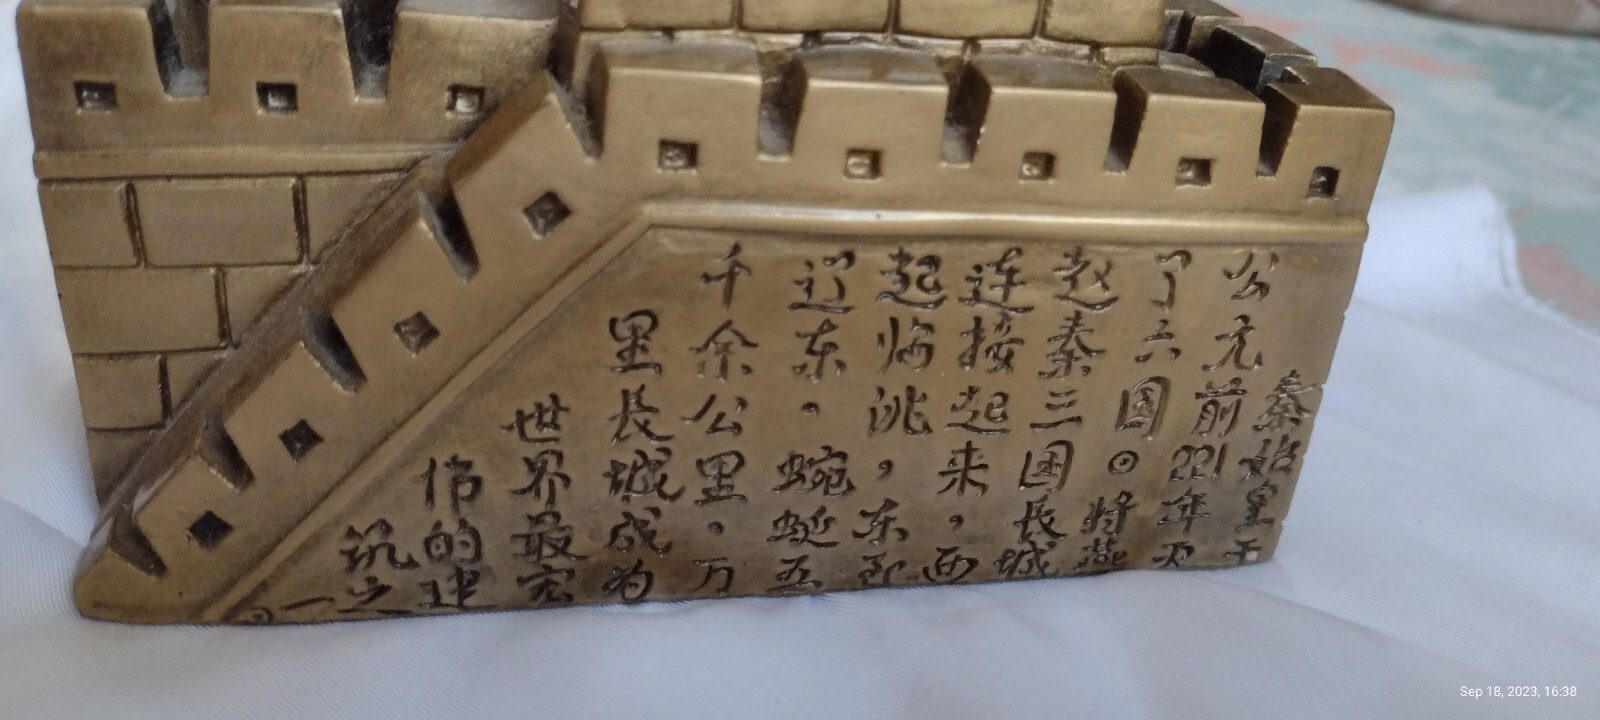 秦始皇于
公元前221年灭
了六国。将燕
赵秦三国長城
连接起来，西
起临洮，东到
辽东，蜿蜒五
千余公里，万
里長城成为
世界最宏
伟的建
筑之一。
Sep 18, 2023, 16:38